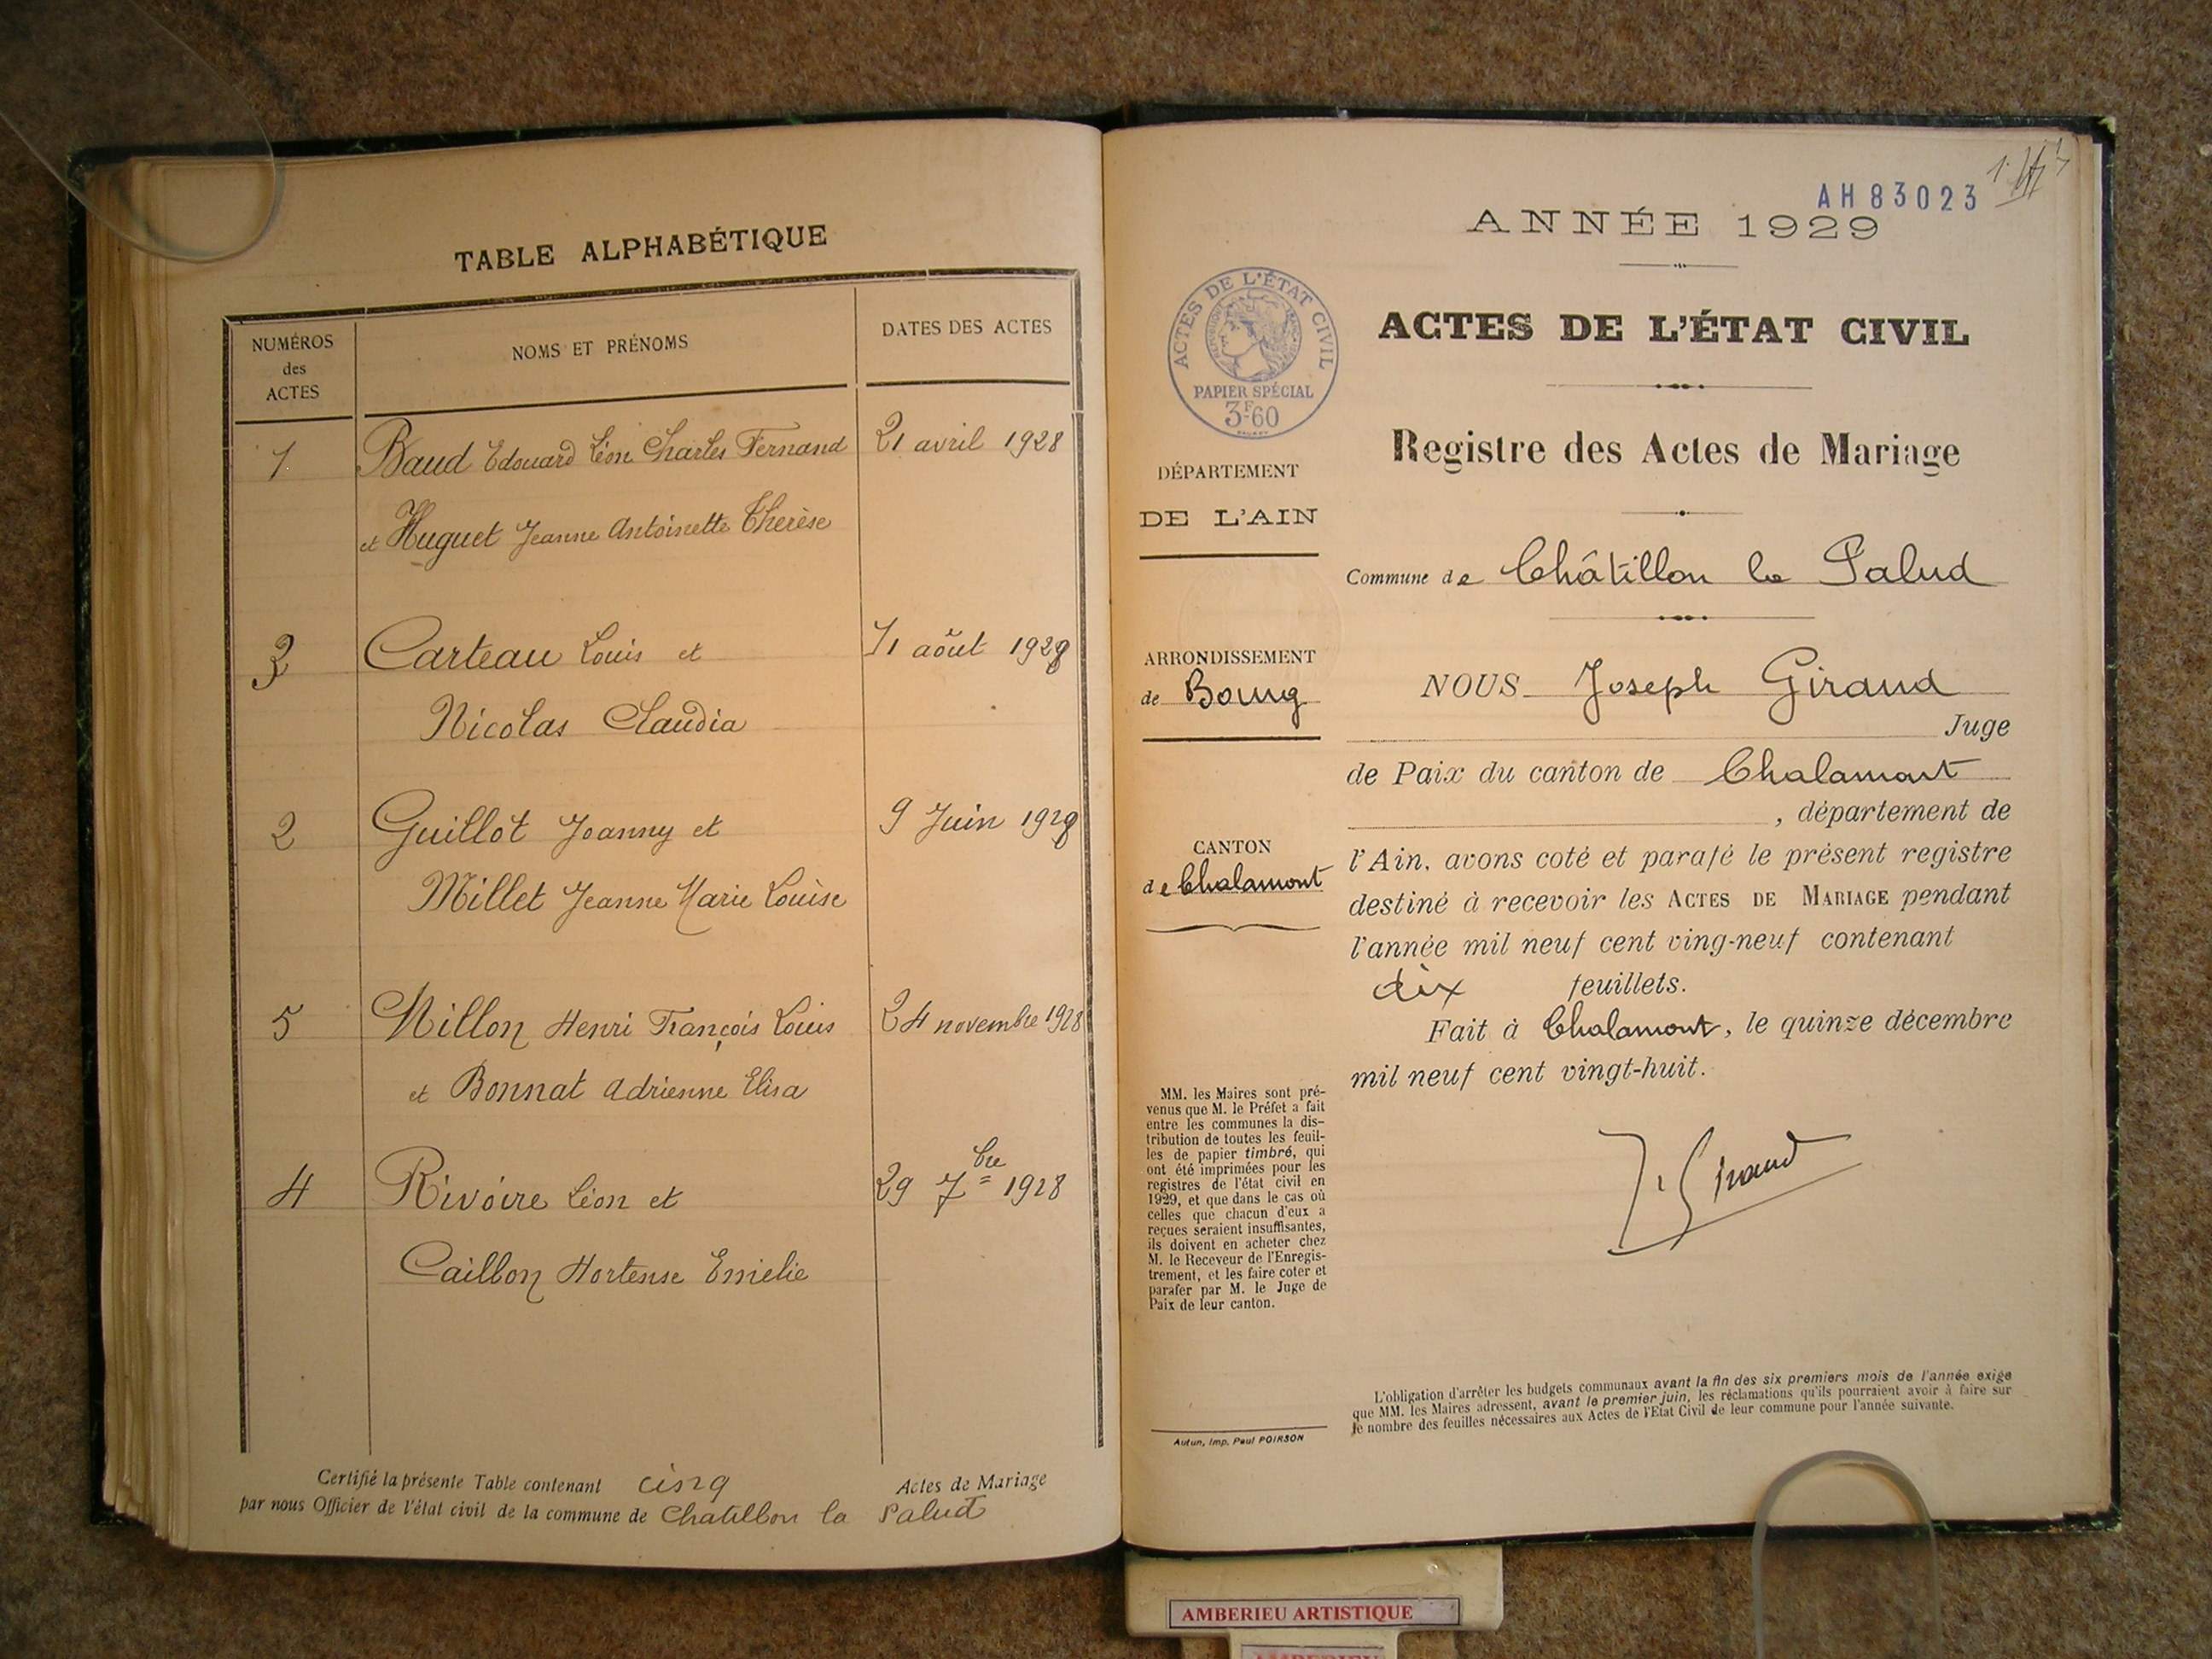 TABLE ALPHABÉTIQUE
NUMÉROS
des
ACTES
NOMS ET PRÉNOMS
DATES DES ACTES
1 Baud Edouard Léon Charles Fernand 21 avril 1928
et Huguet Jeanne Antoinette Therèse
3 Carteau Louis et 11 août 1928
Nicolas Claudia
2 Guillot Joanny et 9 Juin 1928
Millet Jeanne Marie Louise
5 Millon Henri François Louis 24 novembre 1928
et Bonnat Adrienne Elisa
4 Rivoire Léon et 29 7bre 1928
Caillon Hortense Emielie
Certifié la présente Table contenant cinq Actes de Mariage
par nous Officier de l'état civil de la commune de Chatillon la Palud
AH83023
ANNÉE 1929
ACTES DE L'ÉTAT CIVIL
PAPIER SPÉCIAL
3F60
ACTES DE L'ÉTAT CIVIL
Registre des Actes de Mariage
DÉPARTEMENT
DE L'AIN
Commune de Châtillon la Palud
ARRONDISSEMENT
de Bourg
CANTON
de Chalamont
NOUS Joseph Giraud
Juge
de Paix du canton de Chalamont
, département de
l'Ain, avons coté et parafé le présent registre
destiné à recevoir les ACTES DE MARIAGE pendant
l'année mil neuf cent ving-neuf contenant
dix feuillets.
Fait à Chalamont, le quinze décembre
mil neuf cent vingt-huit.
J. Giraud
MM. les Maires sont pré-
venus que M. le Préfet a fait
entre les communes la dis-
tribution de toutes les feuil-
les de papier timbré, qui
ont été imprimées pour les
registres de l'état civil en
1929, et que dans le cas où
celles que chacun d'eux a
reçues seraient insuffisantes,
ils doivent en acheter chez
M. le Receveur de l'Enregis-
trement, et les faire coter et
parafer par M. le Juge de
Paix de leur canton.
Autun, Imp. Paul POIRSON
L'obligation d'arrêter les budgets communaux avant la fin des six premiers mois de l'année exige
que MM. les Maires adressent, avant le premier juin, les réclamations qu'ils pourraient avoir à faire sur
le nombre des feuilles nécessaires aux Actes de l'Etat Civil de leur commune pour l'année suivante.
AMBERIEU ARTISTIQUE
AMBERIEU